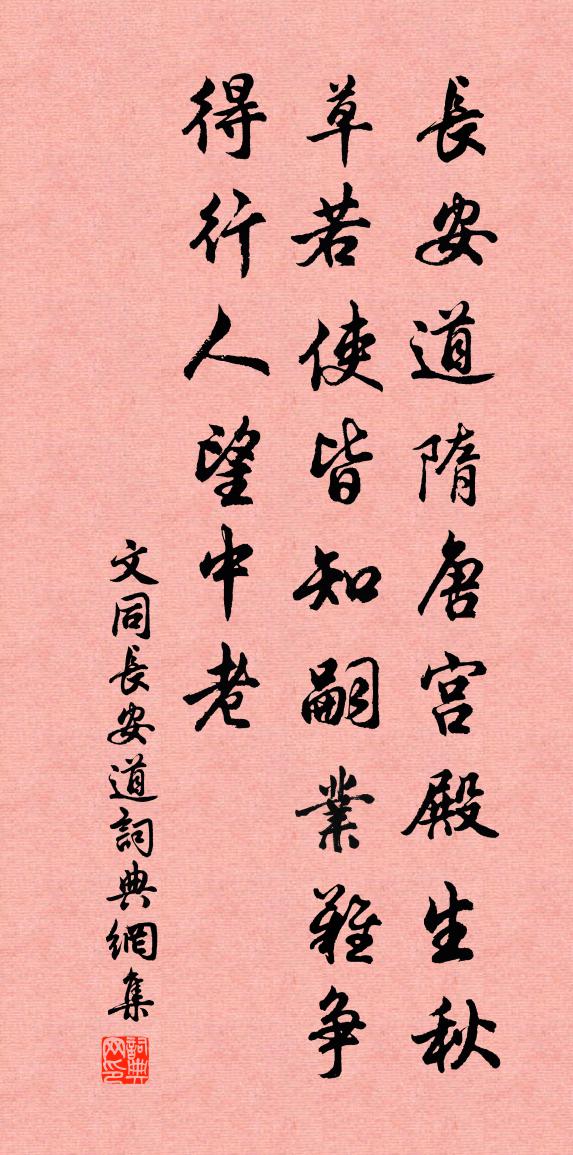 長安道隋唐宫殿生秋
草若使皆知嗣業難争
得行人望中老
文同長安道詞典網集
詞典网印